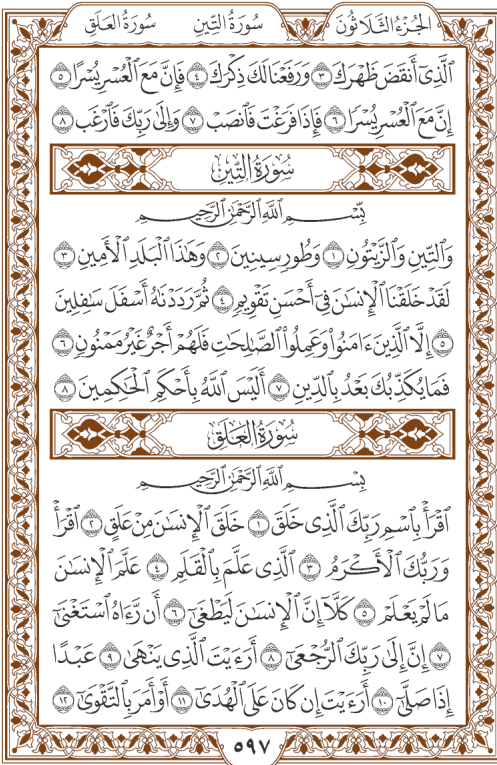 الجُزْءُ الثَّلَاثُونَ سُورَةُ التِّينِ سُورَةُ العَلَقِ
ٱلَّذِىٓ أَنقَضَ ظَهۡرَكَ ٣ وَرَفَعۡنَا لَكَ ذِكۡرَكَ ٤ فَإِنَّ مَعَ ٱلۡعُسۡرِ يُسۡرًا ٥
إِنَّ مَعَ ٱلۡعُسۡرِ يُسۡرٗا ٦ فَإِذَا فَرَغۡتَ فَٱنصَبۡ ٧ وَإِلَىٰ رَبِّكَ فَٱرۡغَب ٨
سُورَةُ التِّينِ
بِسۡمِ ٱللَّهِ ٱلرَّحۡمَٰنِ ٱلرَّحِيمِ
وَٱلتِّينِ وَٱلزَّيۡتُونِ ١ وَطُورِ سِينِينَ ٢ وَهَٰذَا ٱلۡبَلَدِ ٱلۡأَمِينِ ٣
لَقَدۡ خَلَقۡنَا ٱلۡإِنسَٰنَ فِىٓ أَحۡسَنِ تَقۡوِيمٖ ٤ ثُمَّ رَدَدۡنَٰهُ أَسۡفَلَ سَٰفِلِينَ
٥ إِلَّا ٱلَّذِينَ ءَامَنُواْ وَعَمِلُواْ ٱلصَّٰلِحَٰتِ فَلَهُمۡ أَجۡرٌ غَيۡرُ مَمۡنُونٖ ٦
فَمَا يُكَذِّبُكَ بَعۡدُ بِٱلدِّينِ ٧ أَلَيۡسَ ٱللَّهُ بِأَحۡكَمِ ٱلۡحَٰكِمِينَ ٨
سُورَةُ العَلَقِ
بِسۡمِ ٱللَّهِ ٱلرَّحۡمَٰنِ ٱلرَّحِيمِ
ٱقۡرَأۡ بِٱسۡمِ رَبِّكَ ٱلَّذِى خَلَقَ ١ خَلَقَ ٱلۡإِنسَٰنَ مِنۡ عَلَقٍ ٢ ٱقۡرَأۡ
وَرَبُّكَ ٱلۡأَكۡرَمُ ٣ ٱلَّذِى عَلَّمَ بِٱلۡقَلَمِ ٤ عَلَّمَ ٱلۡإِنسَٰنَ
مَا لَمۡ يَعۡلَمۡ ٥ كَلَّآ إِنَّ ٱلۡإِنسَٰنَ لَيَطۡغَىٰٓ ٦ أَن رَّءَاهُ ٱسۡتَغۡنَىٰٓ
٧ إِنَّ إِلَىٰ رَبِّكَ ٱلرُّجۡعَىٰٓ ٨ أَرَءَيۡتَ ٱلَّذِى يَنۡهَىٰ ٩ عَبۡدًا
إِذَا صَلَّىٰٓ ١٠ أَرَءَيۡتَ إِن كَانَ عَلَى ٱلۡهُدَىٰٓ ١١ أَوۡ أَمَرَ بِٱلتَّقۡوَىٰٓ ١٢
٥٩٧